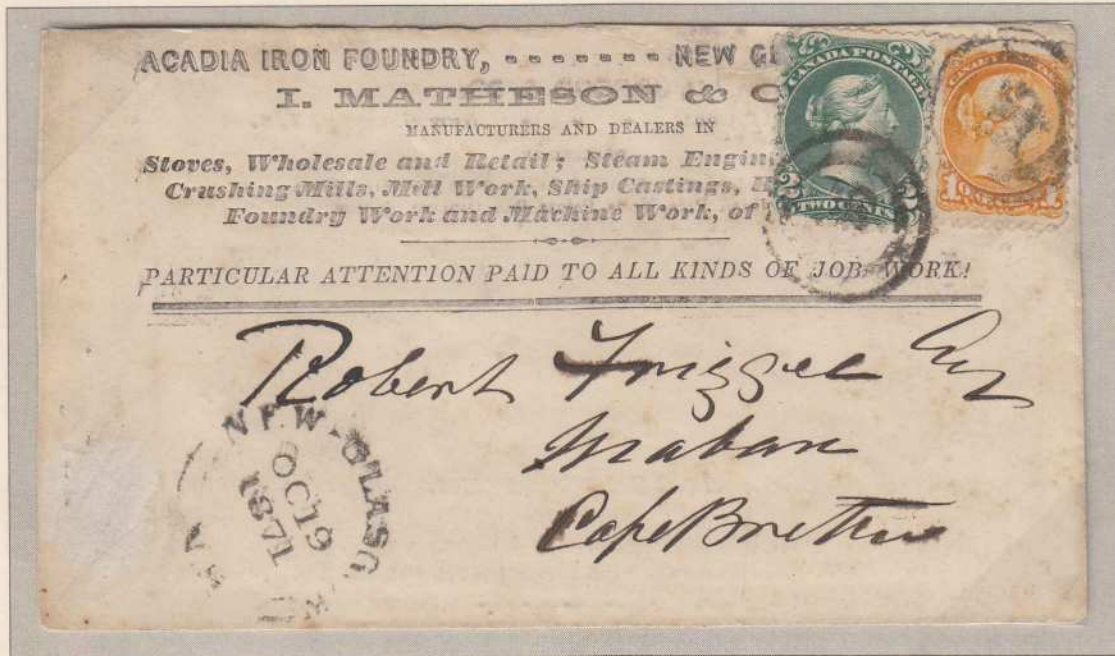 ACADIA IRON FOUNDRY, - - - - - - - - NEW GL
I. MATHESON & C
MANUFACTURERS AND DEALERS IN
Stoves, Wholesale and Retail; Steam Engin
Crushing Mills, Mill Work, Ship Castings,
Foundry Work and Machine Work, of
PARTICULAR ATTENTION PAID TO ALL KINDS OF JOB WORK!
CANADA POSTAGE
2 2
TWO CENTS
1 1
Robert Friggel Esq
Mabou
Cape Breton
NEW-GLASG W
OC 19
1871